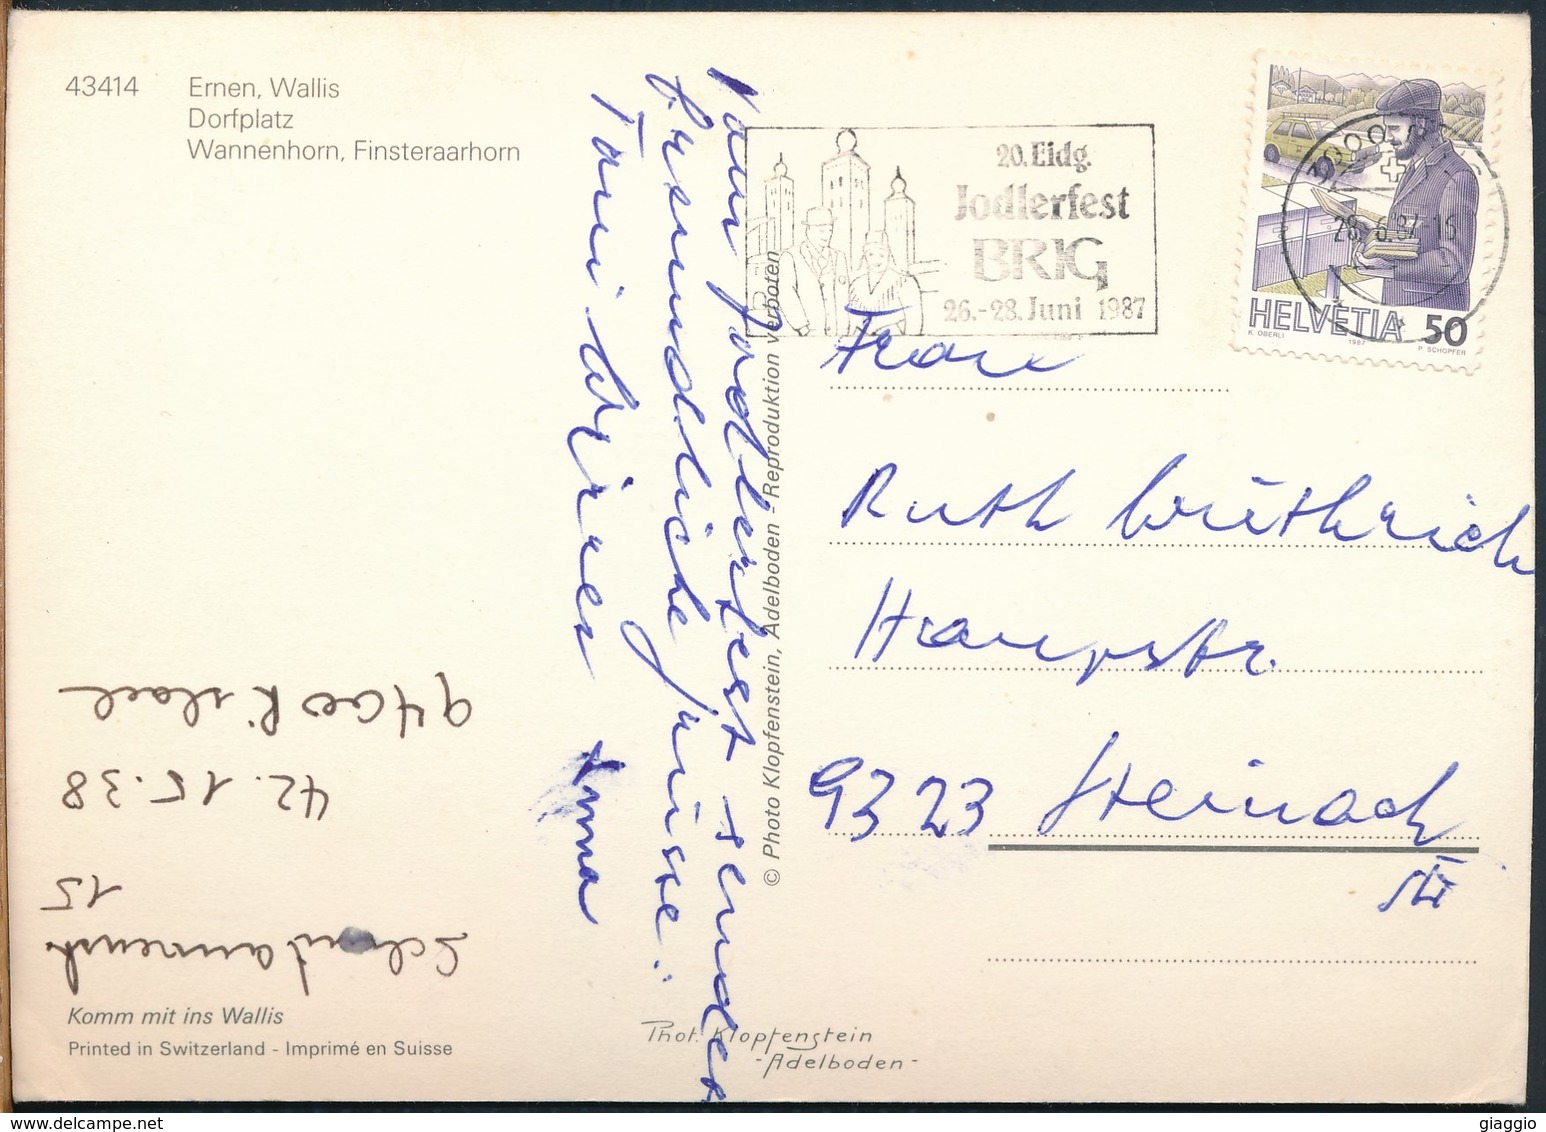 43414 Ernen, Wallis
Dorfplatz
Wannenhorn, Finsteraarhorn
20. Eidg.
Jodlerfest
BRIG
26.-28. Juni 1987
28.-6.87-16
HELVETIA 50
K. OBERLI 1987 P. SCHOPFER
Vom Jodlerfest sendet
freundliche Grüsse:
Toni
Anna
© Photo Klopfenstein, Adelboden - Reproduktion verboten
Frau
Ruth Wüthrich
Haupstr.
9323 Steinach
SG
9400
42.15.38
15
Komm mit ins Wallis
Printed in Switzerland - Imprimé en Suisse
Phot. Klopfenstein
- Adelboden -
www.delcampe.net
giaggio